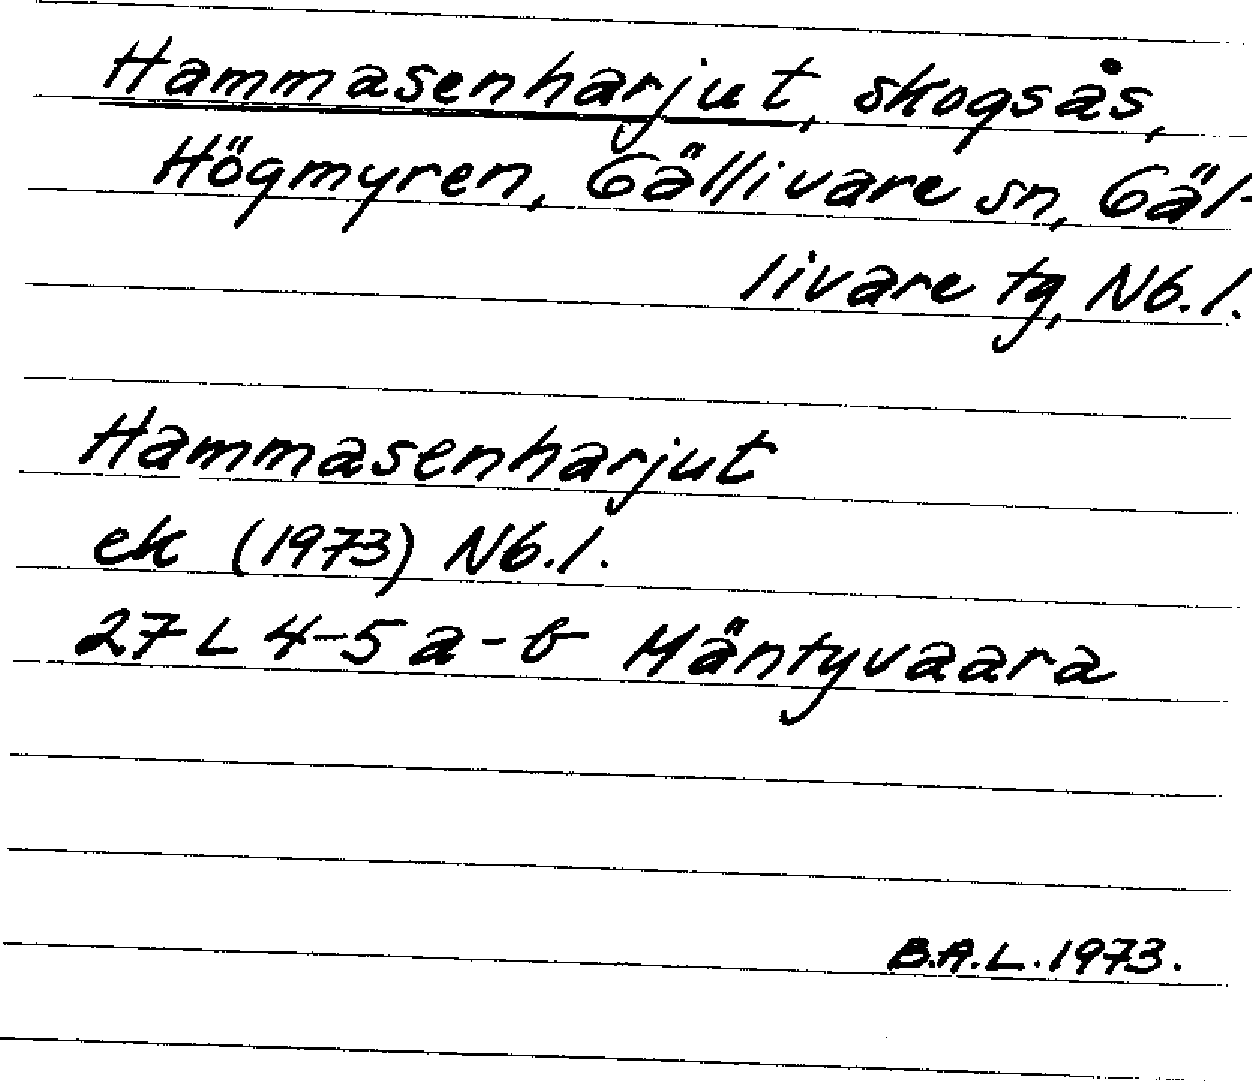 Hammasenharjut, skogsås,
Högmyren, Gällivare sn, Gäl-
livare tg, Nb.l.
Hammasenharjut
ek (1973) Nb.l.
27 L 4-5 a-b Mäntyvaara
B.A.L. 1973.